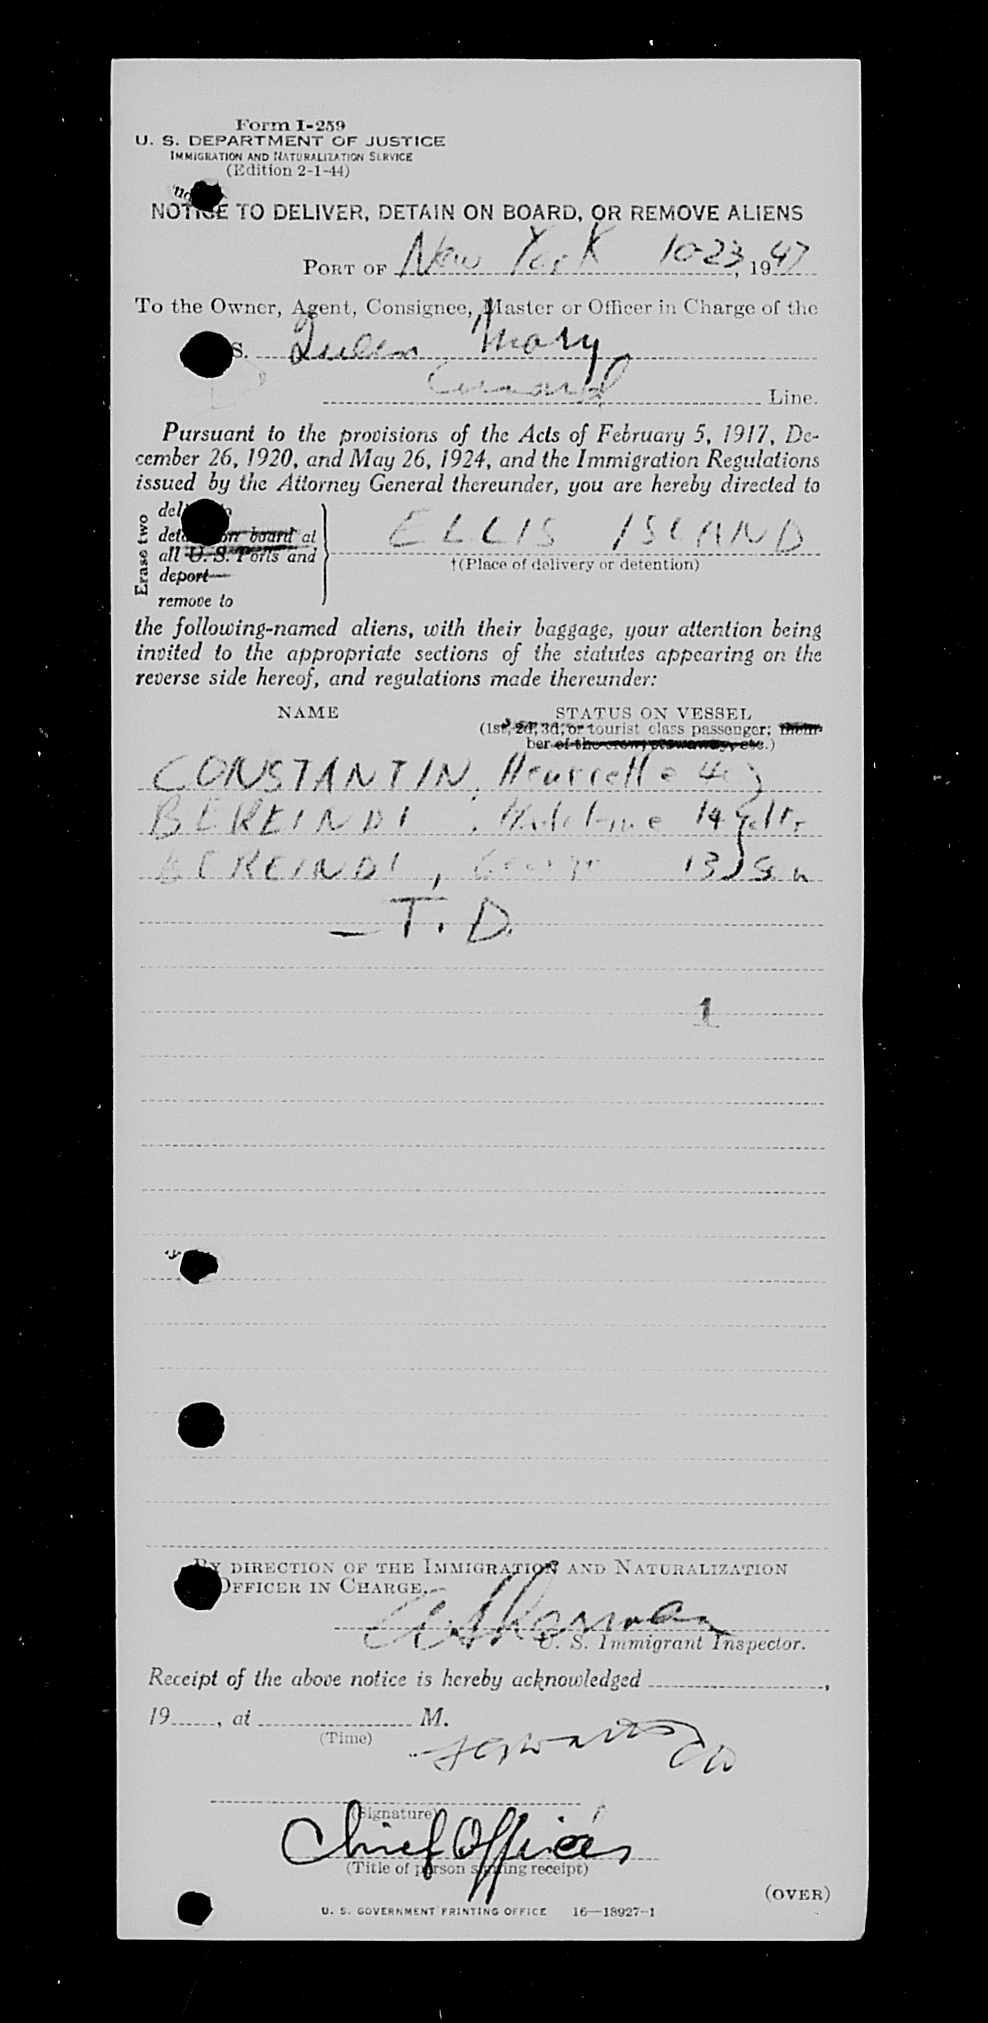 Form I-259
U. S. DEPARTMENT OF JUSTICE
IMMIGRATION AND NATURALIZATION SERVICE
(Edition 2-1-44)
NOTICE TO DELIVER, DETAIN ON BOARD, OR REMOVE ALIENS
PORT OF New York 10-23, 1947
To the Owner, Agent, Consignee, Master or Officer in Charge of the
S. Queen Mary
Cunard Line.
Pursuant to the provisions of the Acts of February 5, 1917, De-
cember 26, 1920, and May 26, 1924, and the Immigration Regulations
issued by the Attorney General thereunder, you are hereby directed to
Erase two
deliver to
detain on board at
all U. S. Ports and
deport
remove to
ELLIS ISLAND
†(Place of delivery or detention)
the following-named aliens, with their baggage, your attention being
invited to the appropriate sections of the statutes appearing on the
reverse side hereof, and regulations made thereunder:
NAME STATUS ON VESSEL
(1st, 2d, 3d, or tourist class passenger; mem-
ber of the crew, stowaway, etc.)
CONSTANTIN, Henriette
BEREINDI, Madeleine 14
BEREINDI, George 13
T. D.
1
BY DIRECTION OF THE IMMIGRATION AND NATURALIZATION
OFFICER IN CHARGE.
Sherman
U. S. Immigrant Inspector.
Receipt of the above notice is hereby acknowledged
19, at M.
(Time)
(Signature)
Chief Officer
(Title of person signing receipt)
(OVER)
U. S. GOVERNMENT PRINTING OFFICE 16—18927-1